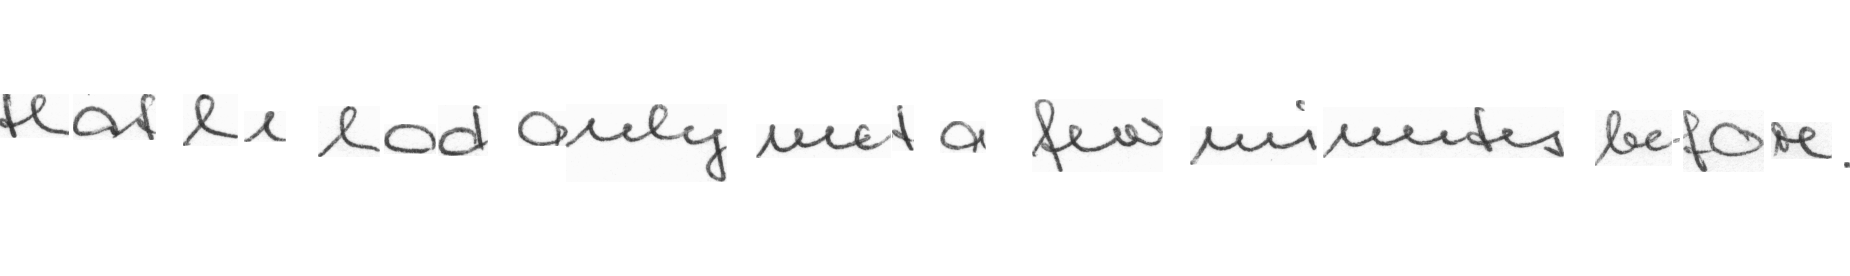 that he had only met a few minutes before.